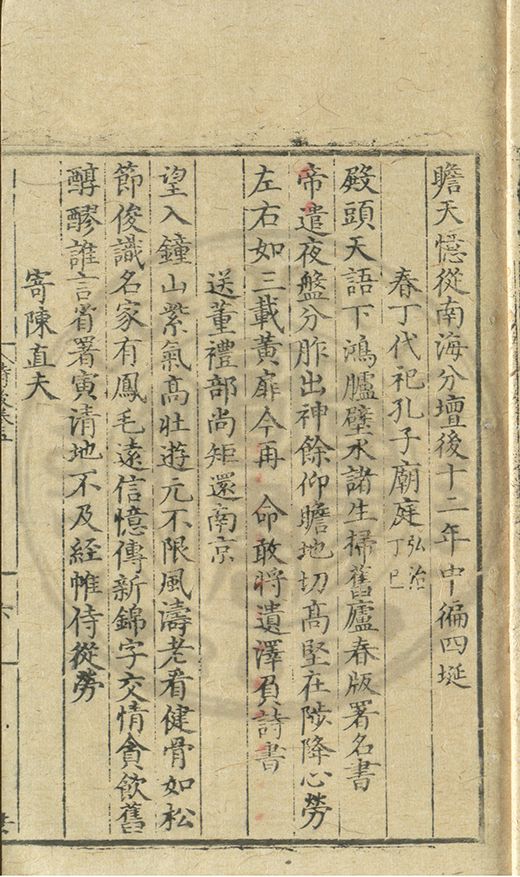 瞻天憶從南海分壇後十二年中徧四埏
春丁代祀孔子廟庭弘治丁巳
殿頭天語下鴻臚璧水諸生掃舊廬春版署名書
帝遣夜盤分胙出神餘仰瞻地切高堅在陟降心勞
左右如三載黃扉今再 命敢將遺澤負詩書
送董禮部尚矩還南京
望入鐘山紫氣高壯遊元不限風濤老看健骨如松
節俊識名家有鳳毛遠信憶傳新錦字交情貪飲舊
醇醪誰言省署寅清地不及經帷侍從勞
寄陳直夫